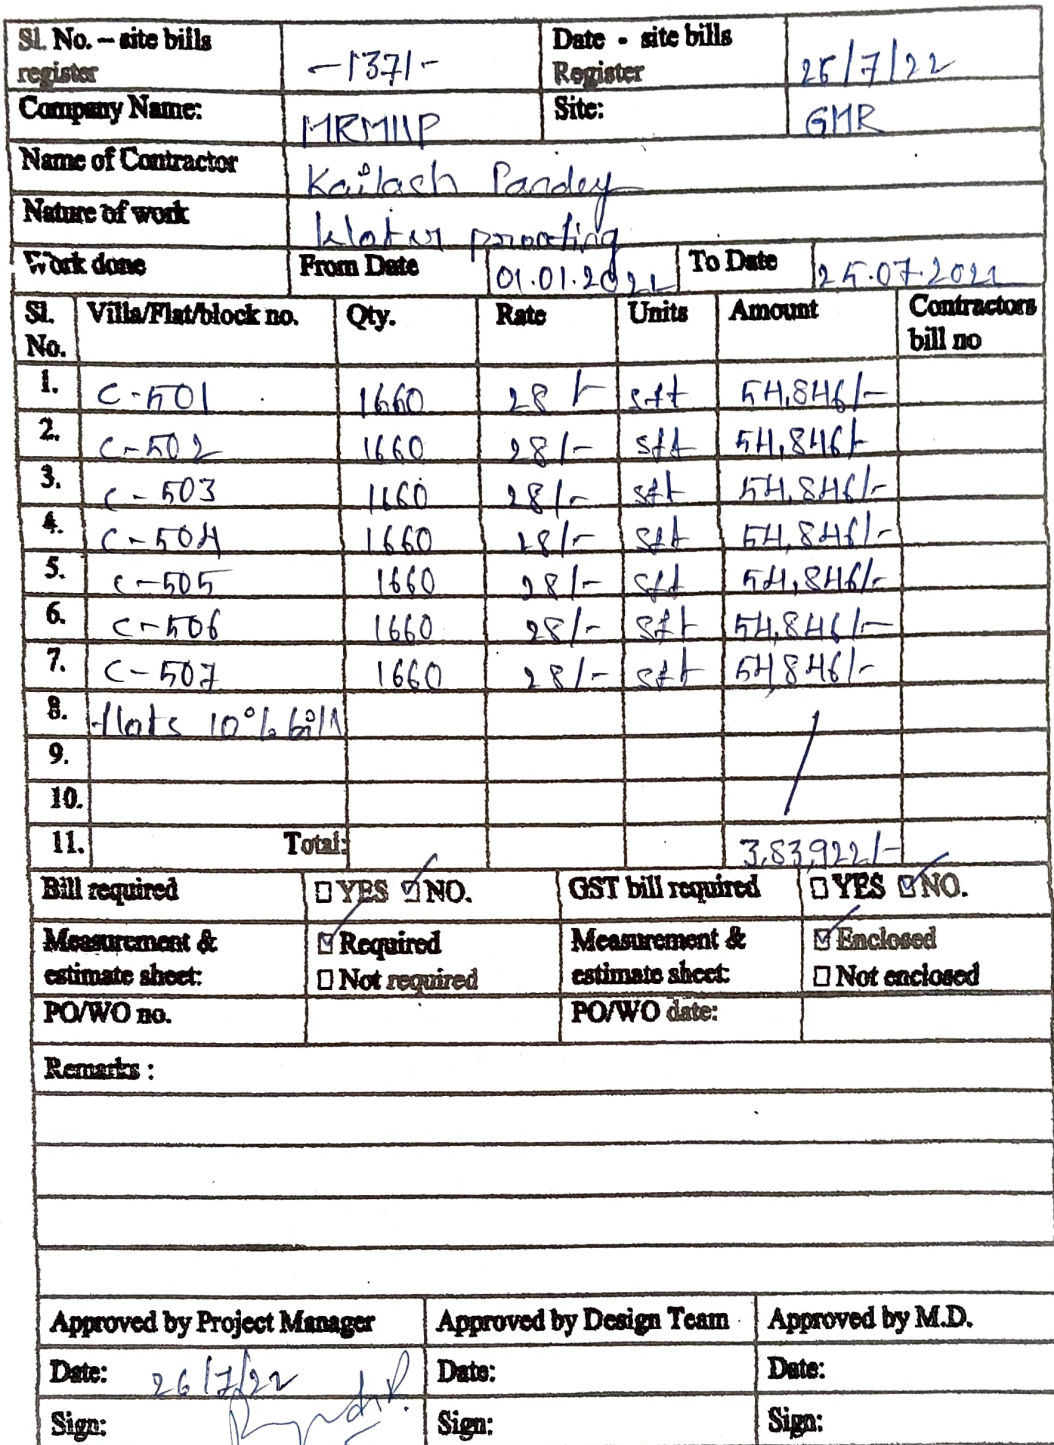 Sl. No. – site bills register -1371- Date - site bills Register 25/7/22
Company Name: MRMLLP Site: GMR
Name of Contractor Kailash Pandey
Nature of work Water proofing
Work done From Date 01.01.2022 To Date 25.07.2022
Sl. No. Villa/Flat/block no. Qty. Rate Units Amount Contractors bill no
1. C-501 1660 28/- sft 54,846/-
2. C-502 1660 28/- sft 54,846/-
3. C-503 1660 28/- sft 54,846/-
4. C-504 1660 28/- sft 54,846/-
5. C-505 1660 28/- sft 54,846/-
6. C-506 1660 28/- sft 54,846/-
7. C-507 1660 28/- sft 54,846/-
8. flats 10% bill
9.
10.
11. Total: 3,83,922/-
Bill required ☐ YES ☑ NO. GST bill required ☐ YES ☑ NO.
Measurement & estimate sheet: ☑ Required ☐ Not required Measurement & estimate sheet: ☑ Enclosed ☐ Not enclosed
PO/WO no. PO/WO date:
Remarks :
Approved by Project Manager Approved by Design Team Approved by M.D.
Date: 26/7/22 Date: Date:
Sign: Sign: Sign: